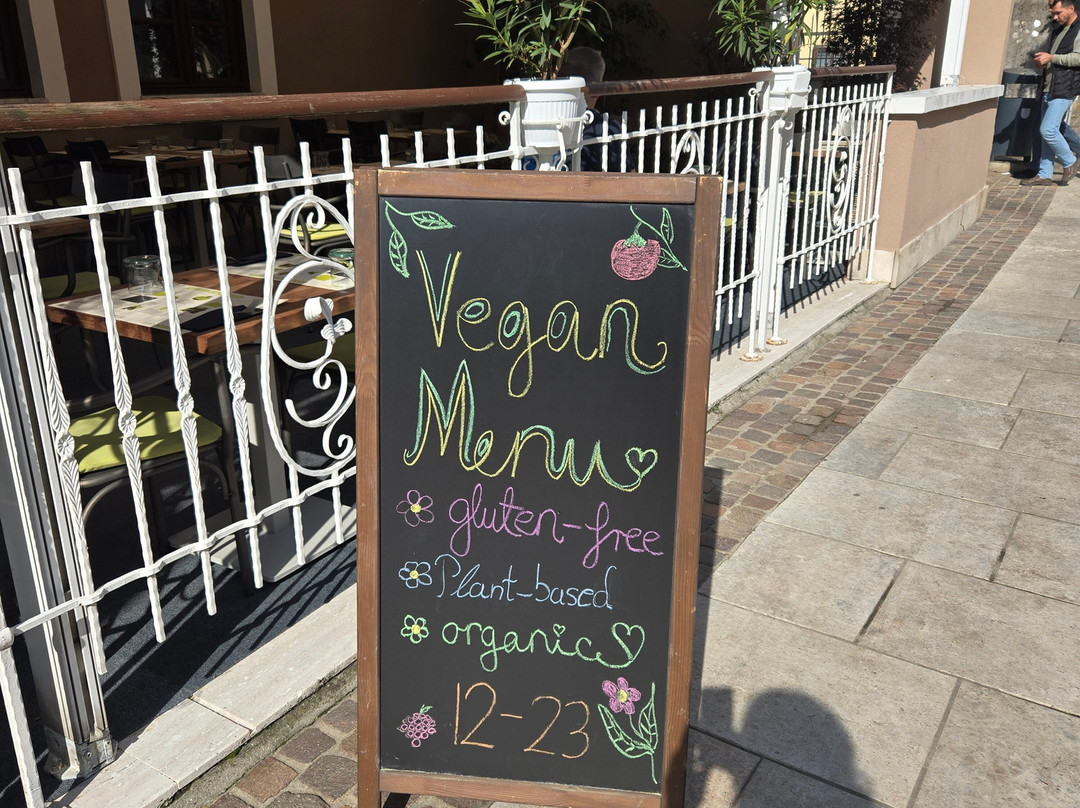 Vegan
Menu
gluten-free
Plant-based
organic
12-23